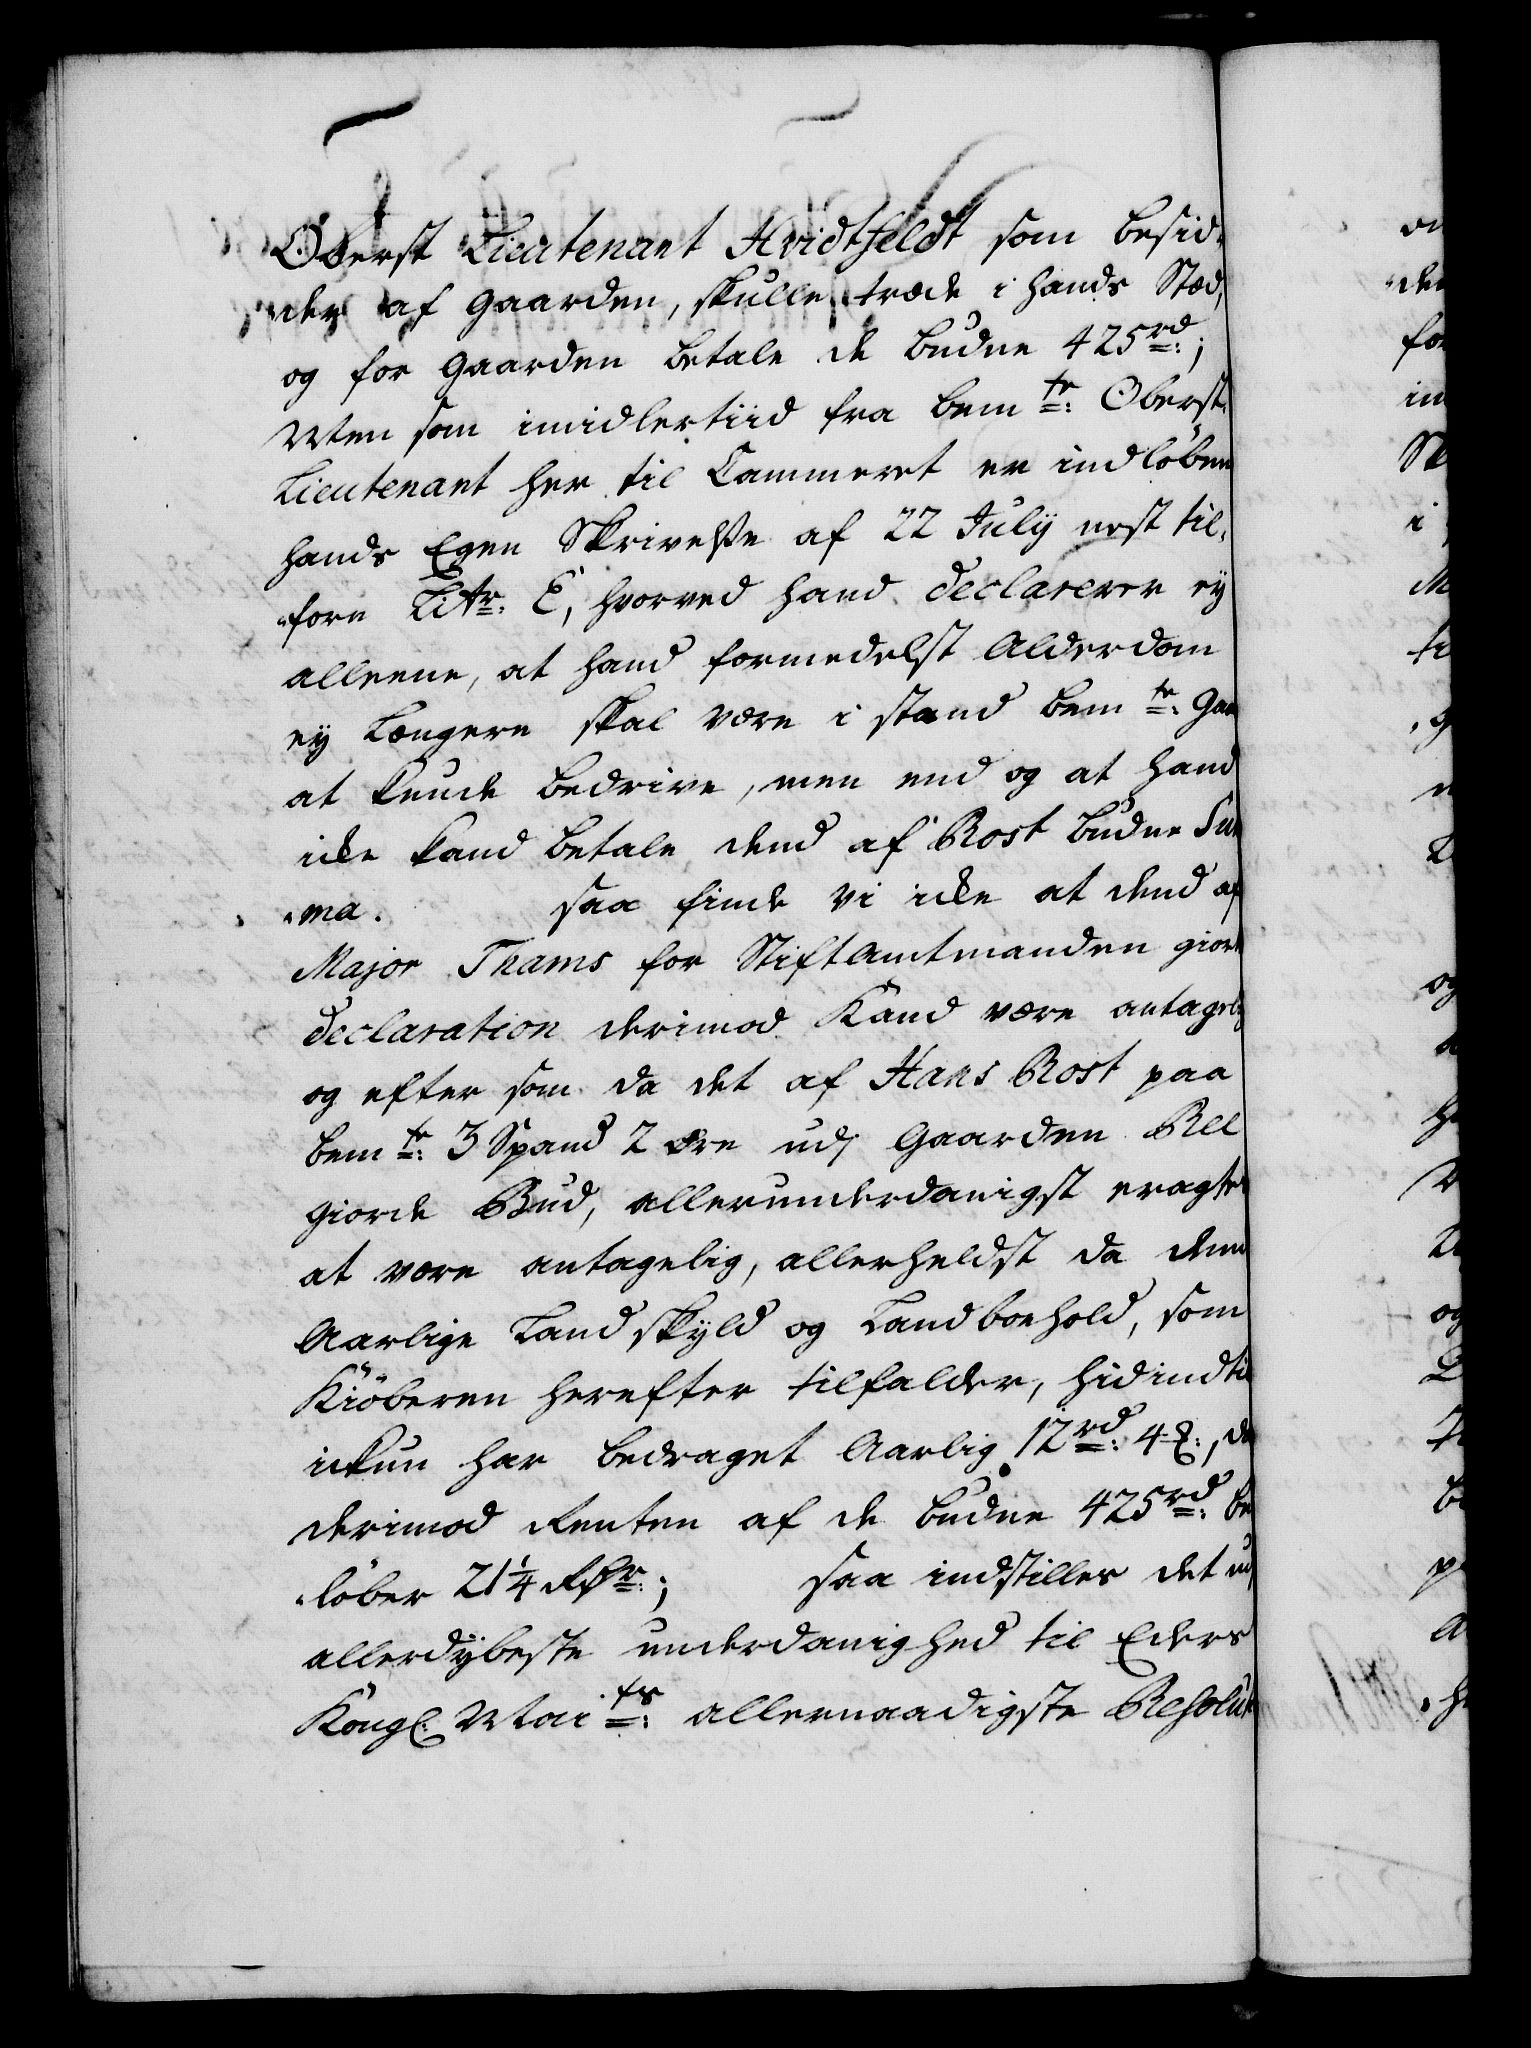 Oberst Lieutenant Hvidtfeldt som besid-
der af Gaarden, skulle træde i hands Sted,
og for Gaarden betale de budne 425 rd:;
Men som imidlertiid fra bemte: Oberst-
Lieutenant her til Cammeret er indløben
hands Egen Skrivelse af 22 July nest til-
forn Litr: E, hvorved hand declarerer ey
alleene, at hand formedelst Alderdom
ey længere skal være i stand bemte: Gaar
at kunde bedrive, men end og at hand
icke kand betale dend af Rost budne Sum
ma. saa finde vi icke at dend af
Major Thams for Stiftamtmanden giort
declaration derimod kand være antagel:
og efter som da det af Hans Rost paa
bemte: 3 Spand 2 øre udj Gaarden Ree
giorde Bud, allerunderdanigst eragtes
at være antagelig, allerheldst da denn
Aarlige Landskyld og Landboehold, som
Kiøberen herefter tilfalder, hidindtil
ickun har bedraget Aarlig 12 rd: 4 ß:, da
derimod Renten af de budne 425 rd: be
løber 21 1/4 Rdr:; saa indstilles det udj
allerdybeste underdanighed til Eders
Kongl: Maits: allernaadigste Resolut